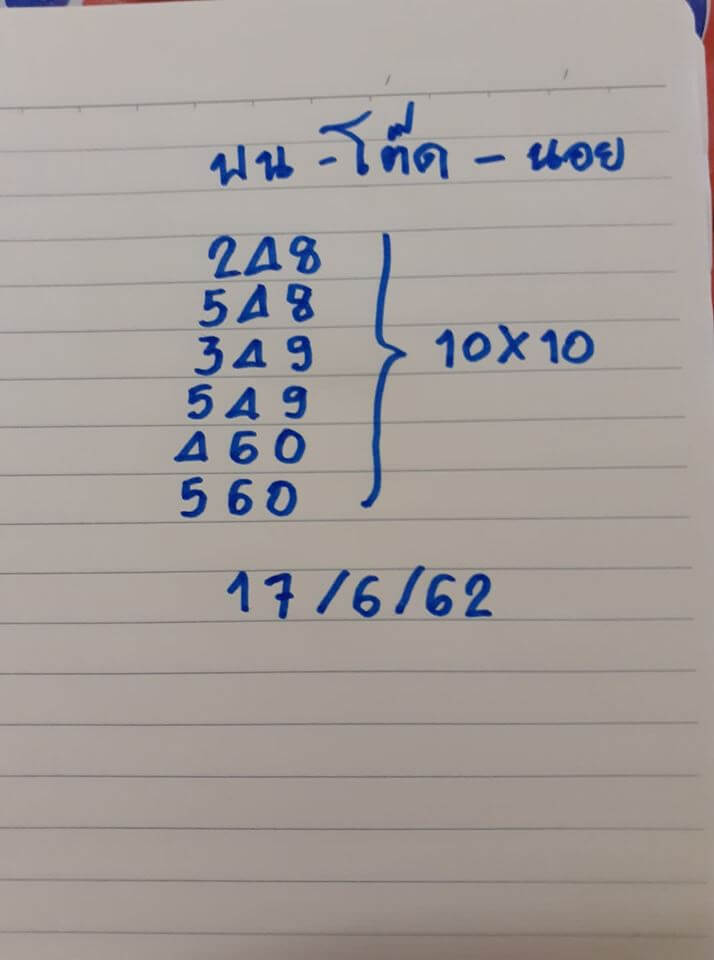 บน - โต๊ด - นอย
248
548
349 } 10X10
549
460
560
17/6/62